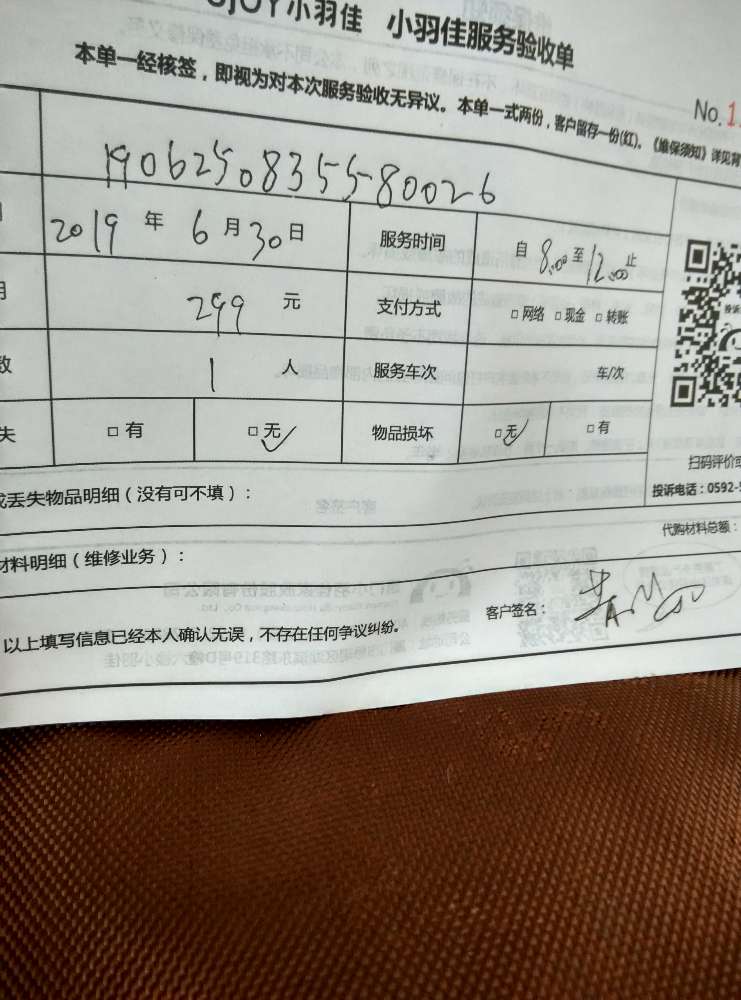 小羽佳 小羽佳服务验收单
本单一经核签，即视为对本次服务验收无异议。本单一式两份，客户留存一份(红)。《维保须知》详见背
No.1
19062508355-80026
2019 年 6 月 30 日 服务时间 自 8:00 至 12:00 止
299 元 支付方式 □ 网络 □ 现金 □ 转账
数 1 人 服务车次 车/次
失 □ 有 □ 无 ✓ 物品损坏 □ 无 ✓ □ 有
扫码评价或
投诉电话：0592-5
丢失物品明细（没有可不填）：
代购材料总额：
材料明细（维修业务）：
以上填写信息已经本人确认无误，不存在任何争议纠纷。
客户签名：